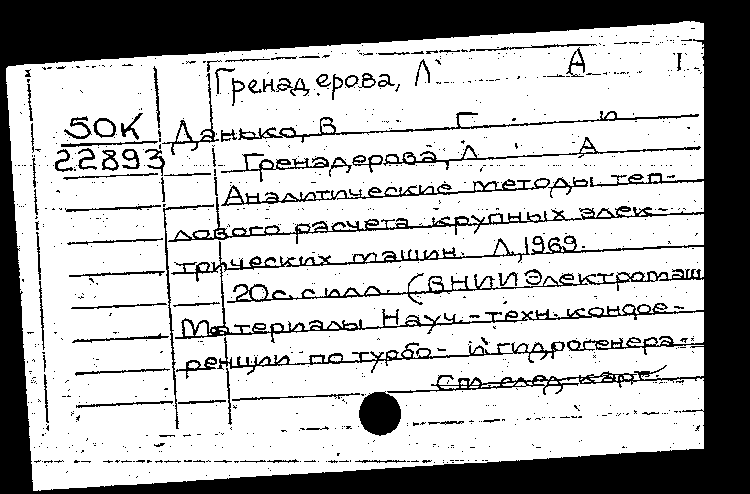 Гренадерова, Л А I
50К Данько, В Г. и
22893 Гренадерова, Л. А
Аналитические методы теп-
лового расчета крупных элек-
трических машин. Л, 1969.
20с. с илл. (ВНИИЭлектромаш
Материалы Науч.-техн. конфе-
ренции по турбо- и гидрогенера-
См. след. карт.